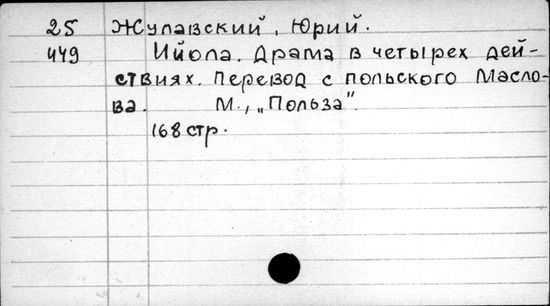 25 Жулавский, Юрий.
449 Ийола. Драма в четырех дей-
ствиях. Перевод с польского Масло-
ва. М., „Польза".
168 стр.